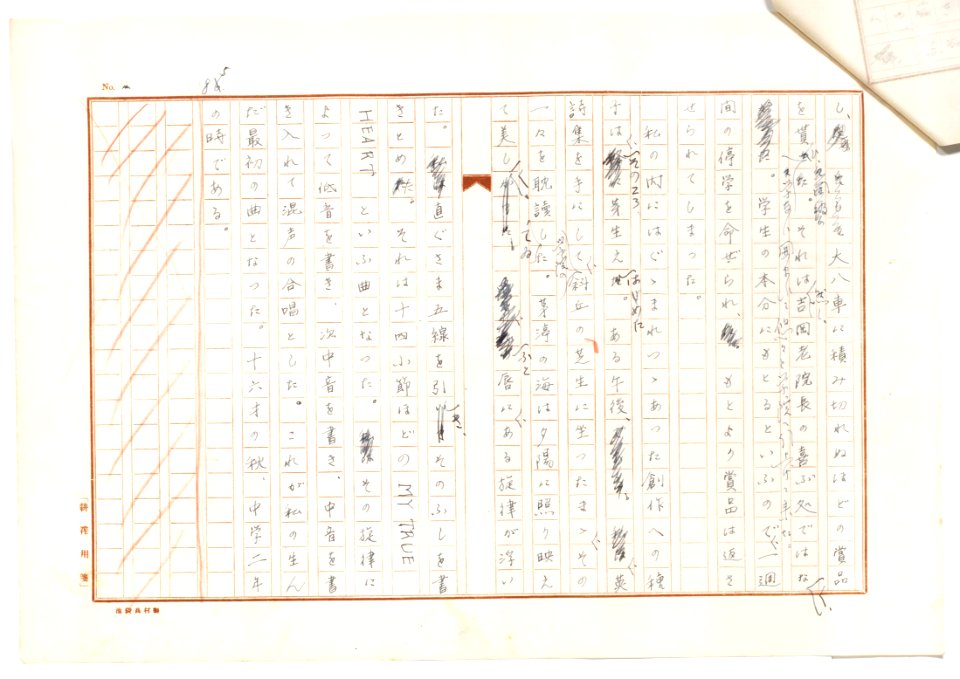 No.
85
し、大八車に積み切れぬほどの賞品
を貰った。それは吉岡老院長の喜ぶ処ではな
く、
。学生の本分にもとるといふので、一週
間の停学を命ぜられ、もとより賞品は返さ
せられてしまった。
私の内にはぐゝまれつゝあった創作への種
子はそのころ芽生えはじめた。ある午後、英
詩集を手にして斜丘の芝生に坐ったまゝその
一々を耽読した。茅渟の海は夕陽に照り映え
て美しく、ふと唇にある旋律が浮い
た。直ぐさま五線を引き、そのふしを書
きとめた。それは十四小節ほどの MY TRUE
HEART といふ曲となった。その旋律に
よって低音を書き、次中音を書き、中音を書
き入れて混声の合唱とした。これが私の生ん
だ最初の曲となった。十六才の秋、中学二年
の時である。
「耕筰用箋」